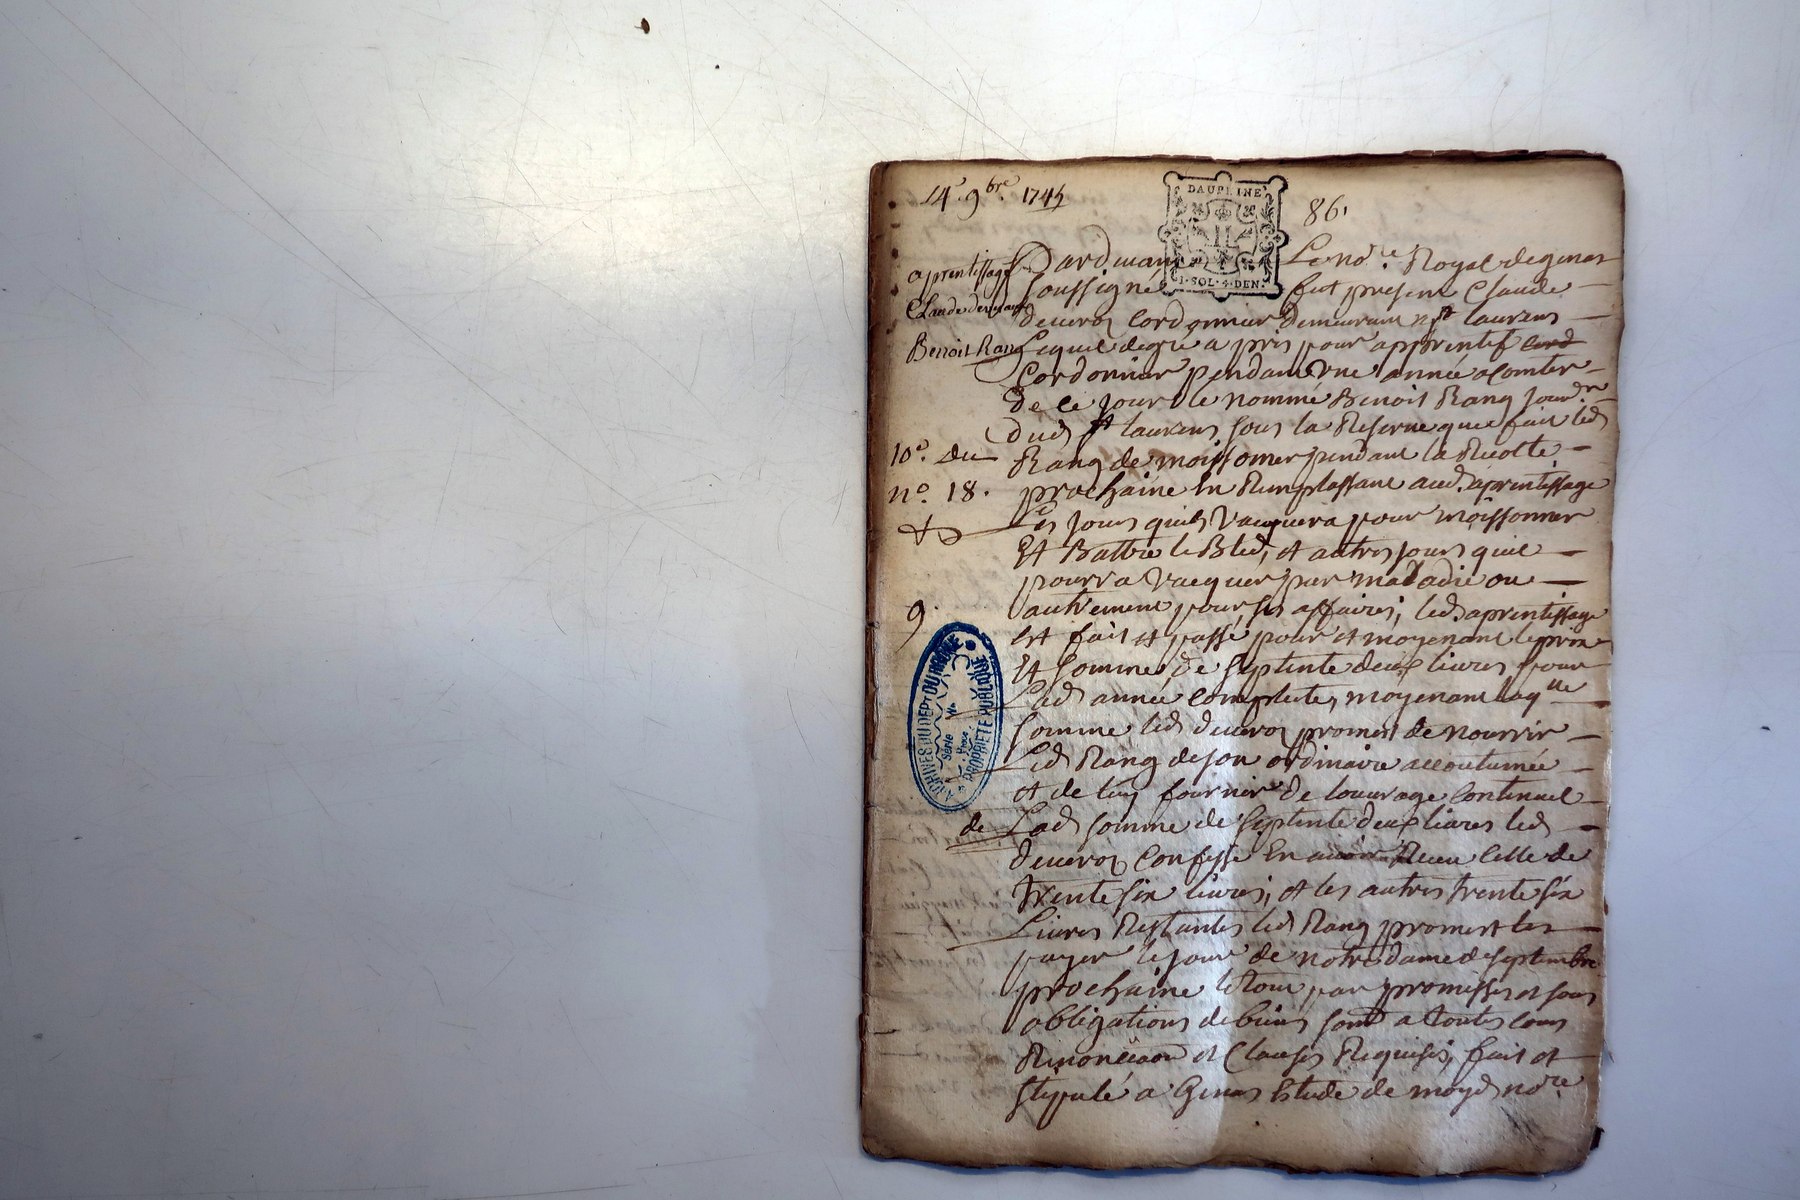 14e 9bre 1745
DAUPHINE
1·SOL·4·DEN.
86
aprentissage
Claude deveroz
Benoit Rang
10e. du
no. 18.
9
ARCHIVES DU DEPT DU RHONE
Série
PROPRIETE PUBLIQUE
Pardevant Le nore. Royal de genas
soussigné fut present Claude
deveroz Cordonnier demeurant a st laurens
Lequel degré a pris pour apprentif cord
Cordonnier pendant une année a Comter
de ce jour le nommé Benoit Rang jour.
dud st laurens sous la Reserve que fait led
Rang de moissonner pendant la Recolte
prochaine En Remplassant aud. aprentissage
Les jours quil vacquera pour moissonner
Et Battre le Bled, et autres jours quil
pourra vacquer par maladie ou
autrement pour ses affaires; led. aprentissage
est fait et passé pour et moyenant le prix
Et somme de septente deux livres pour
Lad année complete, moyenant laqlle
somme led deveroz promet de nourrir
Led Rang de son ordinaire accoutumée
et de luy fournir de louvrage continuel
de Lad somme de septente deux livres led
deveroz Confesse En avoir Receu celle de
trente six livres; et les autres trente six
Livres Restantes led Rang promet les
payer le jour de notre dame de septembre
prochaine le tout par promesses et sous
obligations de biens sont a toutes cours
Renonciaon et Clauses Requises, fait et
stipulé a Genas Etude de moyd nore